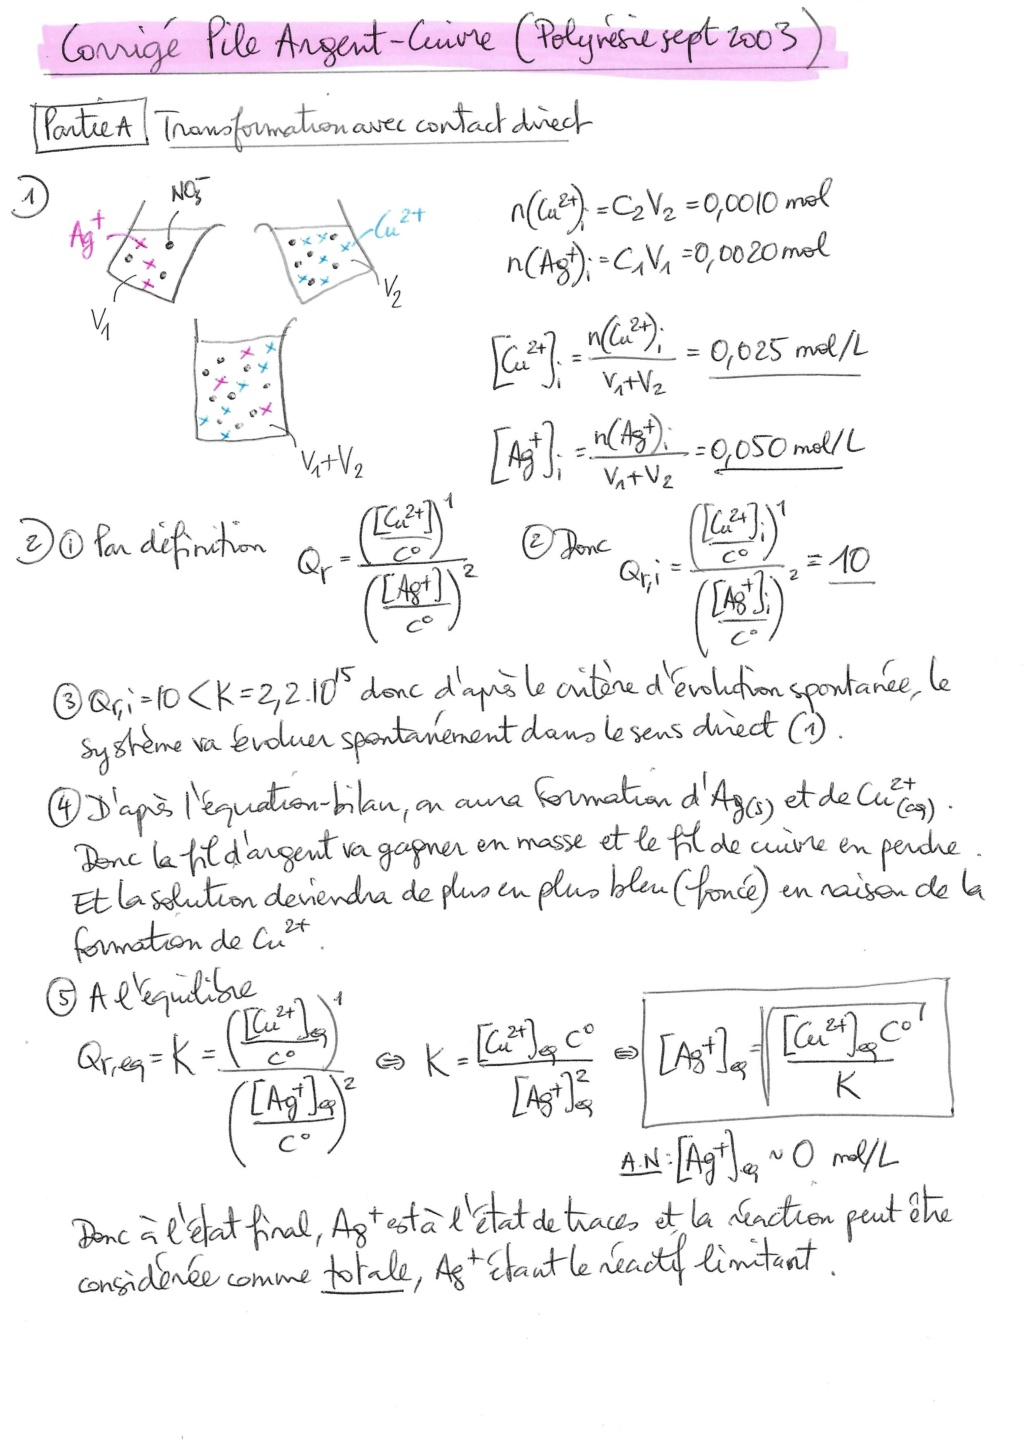 Corrigé Pile Argent-Cuivre (Polynésie sept 2003)
Partie A Transformation avec contact direct
①
Ag⁺ NO₃⁻ Cu²⁺
V₁ V₂
V₁+V₂
n(Cu²⁺)ᵢ = C₂V₂ = 0,0010 mol
n(Ag⁺)ᵢ = C₁V₁ = 0,0020 mol
[Cu²⁺]ᵢ = n(Cu²⁺)ᵢ / (V₁+V₂) = 0,025 mol/L
[Ag⁺]ᵢ = n(Ag⁺)ᵢ / (V₁+V₂) = 0,050 mol/L
② ① Par définition Qr = ([Cu²⁺]/C°)¹ / ([Ag⁺]/C°)² ② Donc Qr,i = ([Cu²⁺]ᵢ/C°)¹ / ([Ag⁺]ᵢ/C°)² = 10
③ Qr,i = 10 < K = 2,2.10¹⁵ donc d'après le critère d'évolution spontanée, le
système va évoluer spontanément dans le sens direct (1).
④ D'après l'équation-bilan, on aura formation d'Ag(s) et de Cu²⁺(aq).
Donc le fil d'argent va gagner en masse et le fil de cuivre en perdre.
Et la solution deviendra de plus en plus bleu (foncé) en raison de la
formation de Cu²⁺.
⑤ A l'équilibre
Qr,eq = K = ([Cu²⁺]eq/C°)¹ / ([Ag⁺]eq/C°)² ⇔ K = [Cu²⁺]eq C° / [Ag⁺]²eq ⇔ [Ag⁺]eq = √([Cu²⁺]eq C° / K)
A.N : [Ag⁺]eq ~ 0 mol/L
Donc à l'état final, Ag⁺ est à l'état de traces et la réaction peut être
considérée comme totale, Ag⁺ étant le réactif limitant.